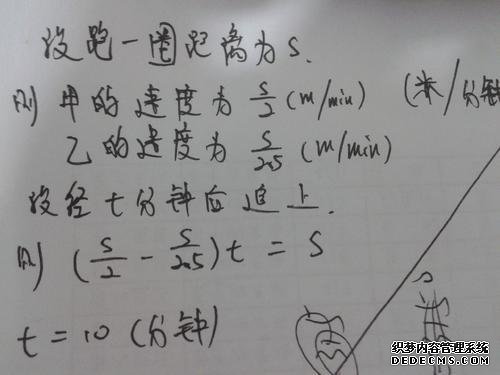 设跑一圈距离为S.
则甲的速度为 S/2 (m/min) (米/分钟
乙的速度为 S/2.5 (m/min)
设经t分钟后追上.
则 (S/2 - S/2.5)t = S
t = 10 (分钟)
织梦内容管理系统
DEDECMS.COM